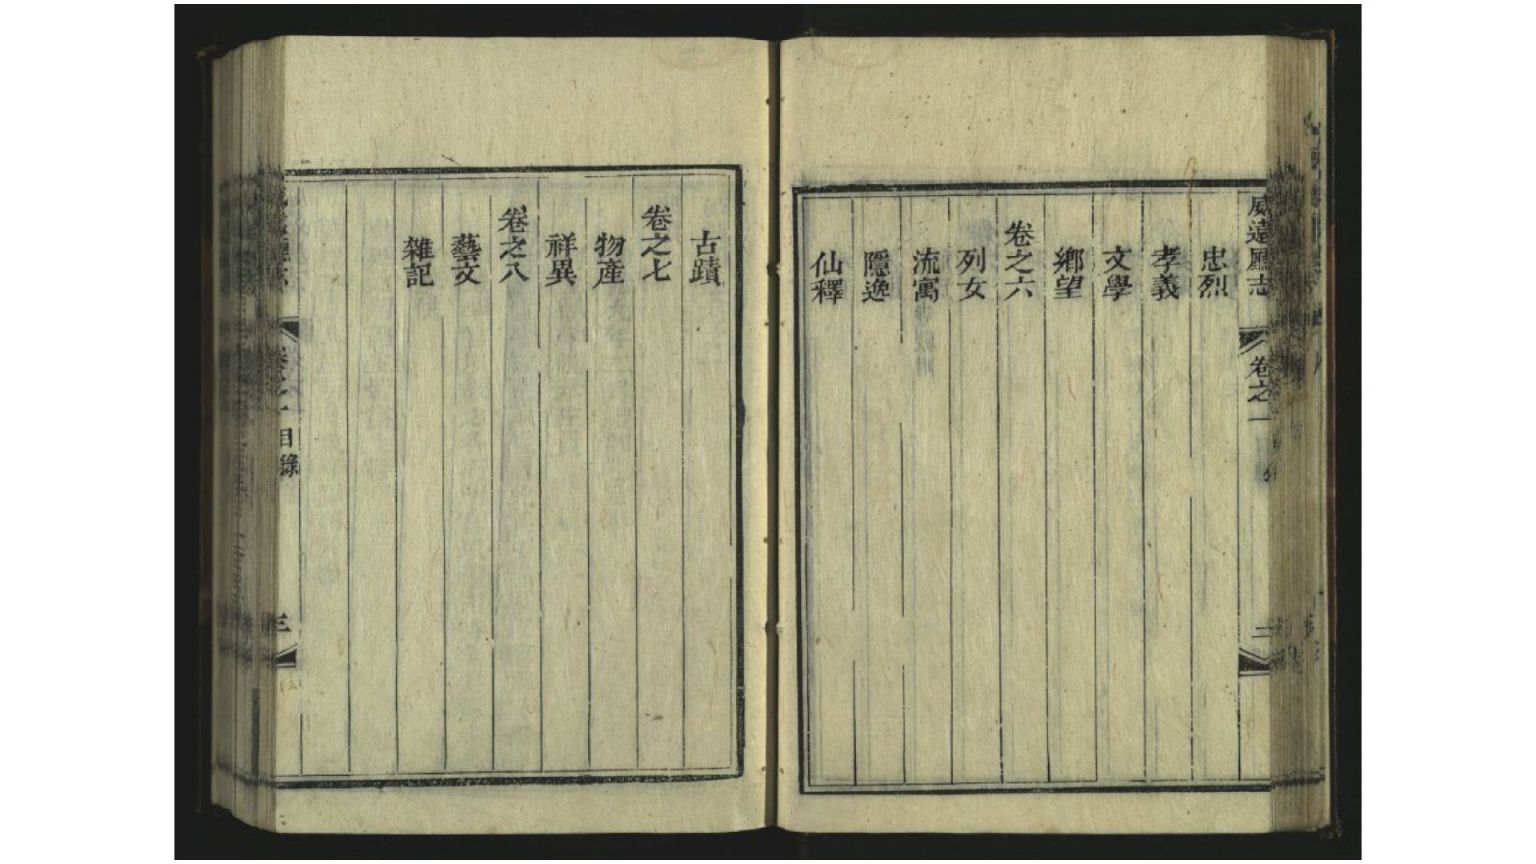 威遠廳志 卷之一 二
忠烈
孝義
文學
鄉望
卷之六
列女
流寓
隱逸
仙釋
古蹟
卷之七
物產
祥異
卷之八
藝文
雜記
卷之一 目錄 三